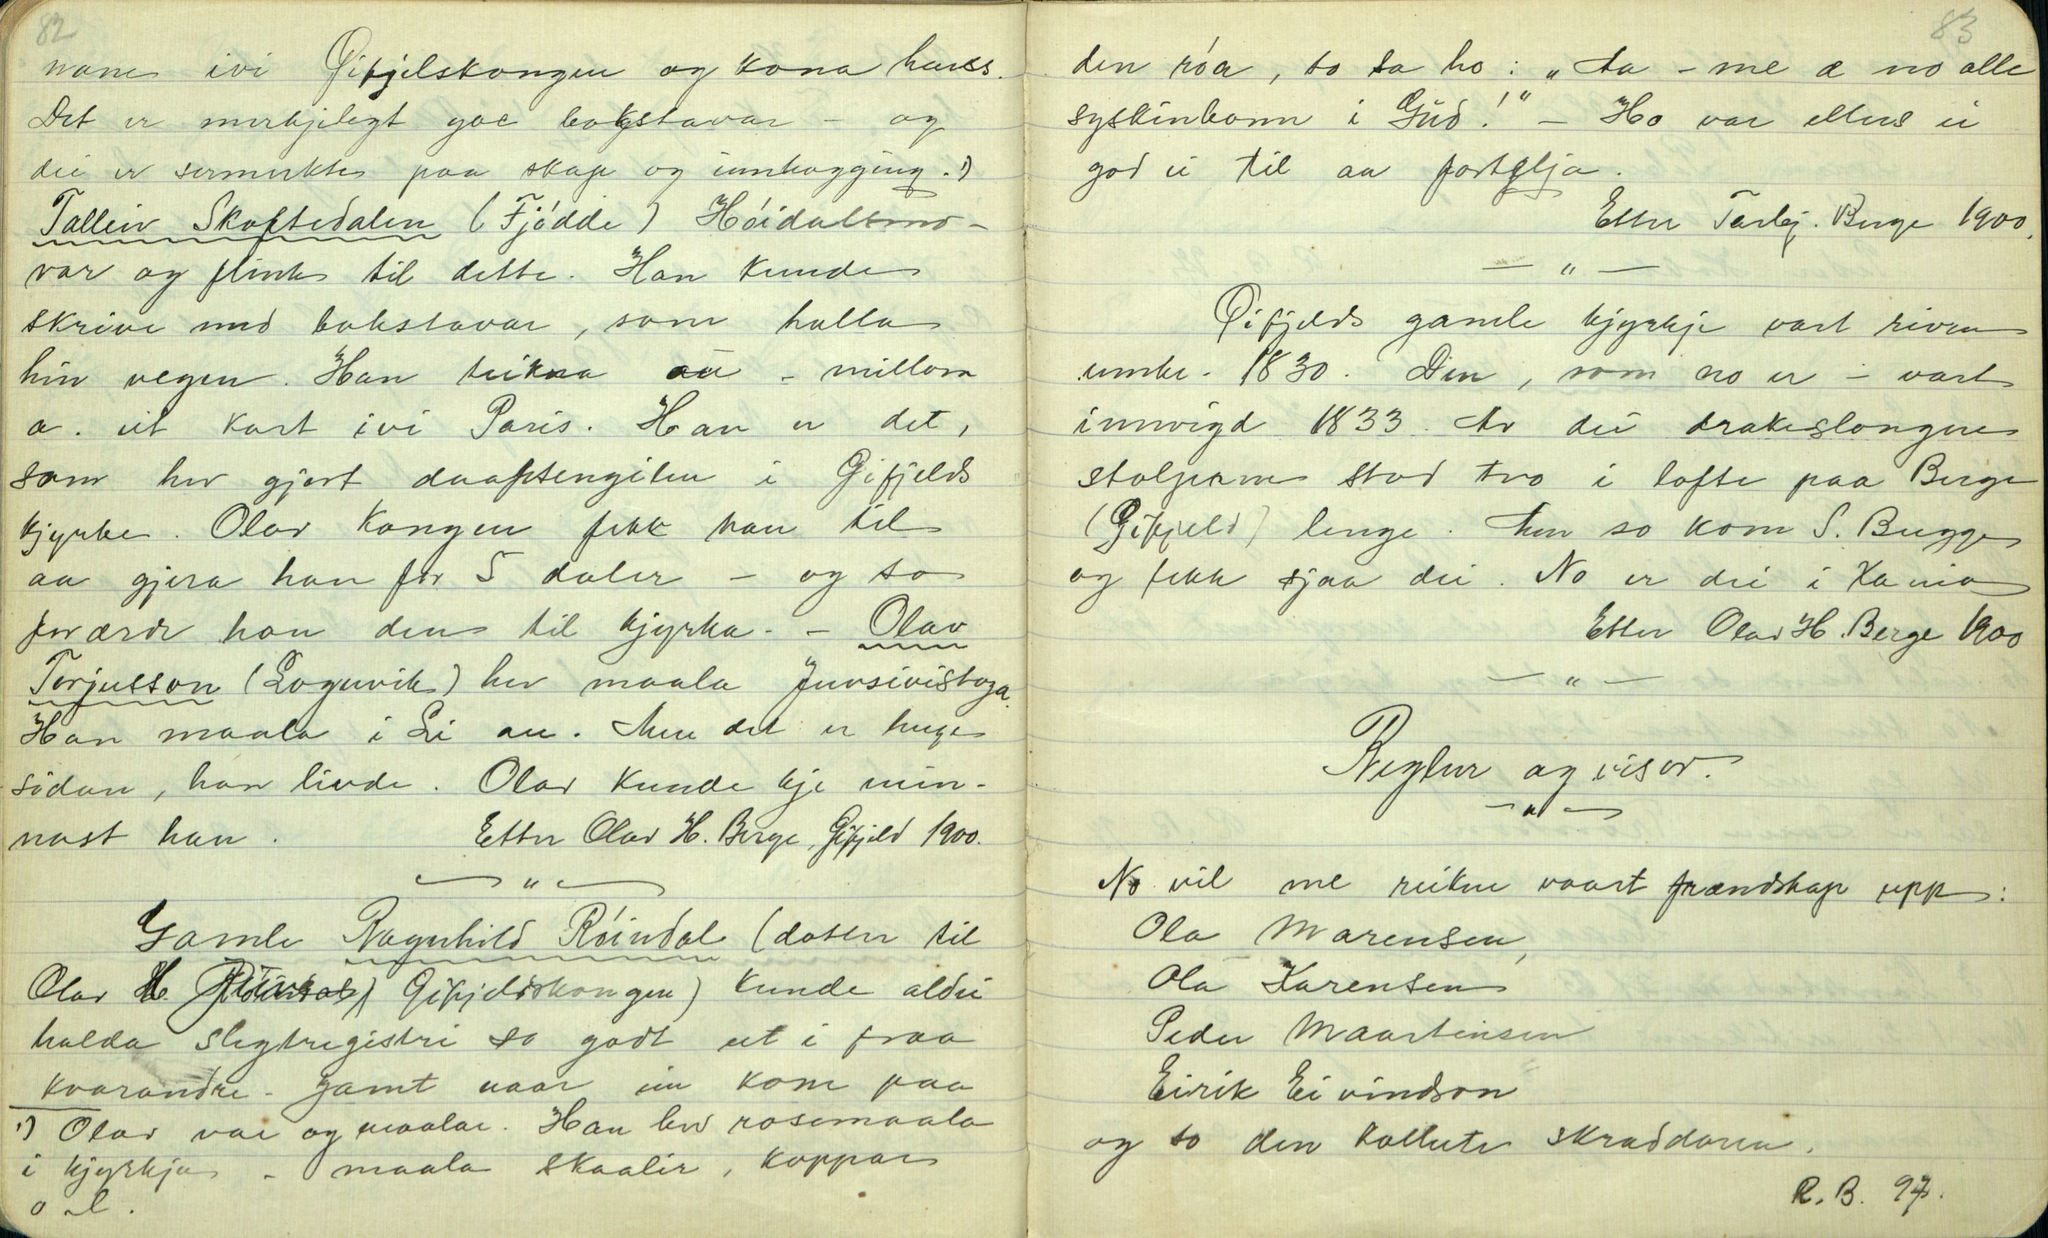 82
nane ivi Gifjelskongen og kona hanss.
Det er merkjelegt goe bokstavar – og
dei er sermerkte paa skap og innhogging. 1)
Talleiv Skoftedalen (Fjødde) Høidalsmo –
var og flink til dette. Han kunde
skrive med bokstavar, som halla
hin vegen. Han teikna au – millom
a. eit kart ivi Paris. Han er det,
som hev gjort daapsengilen i Gifjelds
kjyrke. Olav Kongen fekk han til
aa gjera han for 5 daler – og so
forærde han den til kjyrka. – Olav
Terjusson (Loguvik) hev maala Juvsivistoga.
Han maala i Li au. Men det er lenge
sidan, han livde. Olav kunde kje min-
nast han. Etter Olav H. Berge, Gifjeld 1900.
– " –
Gamle Ragnhild Røindal (doter til
Olav Gifjeldskongen) kunde aldri
halda slegtregistri so godt ut i fraa
kvarandre. Jamt naar ein kom paa
1) Olav var og maalar. Han hev rosemaala
i kjyrkja – maala skaalir, koppar
o. l.
83
den røa, so sa ho: „Aa – me æ no alle
syskinbonn i Gud!" – Ho var ellers ei
god ei til aa fortelja.
Etter Torbj. Berge 1900.
– " –
Gifjelds gamle kjyrkje vart riven
umkr. 1830. Den, som no er – vart
innvigd 1833. Av dei drakeslongne
stolpanne stod tvo i lofte paa Berge
(Gifjeld) lenge. Men so kom S. Bugge
og fekk sjaa dei. No er dei i Xania
Etter Olav H. Berge 1900
– " –
Reglur og visor.
– " –
No vil me reikne vaart frændskap upp:
Ola Marensen,
Ola Karensen
Peder Maartensen
Eirik Eivindson
og so den kollute skraddaren.
R. B. 97.